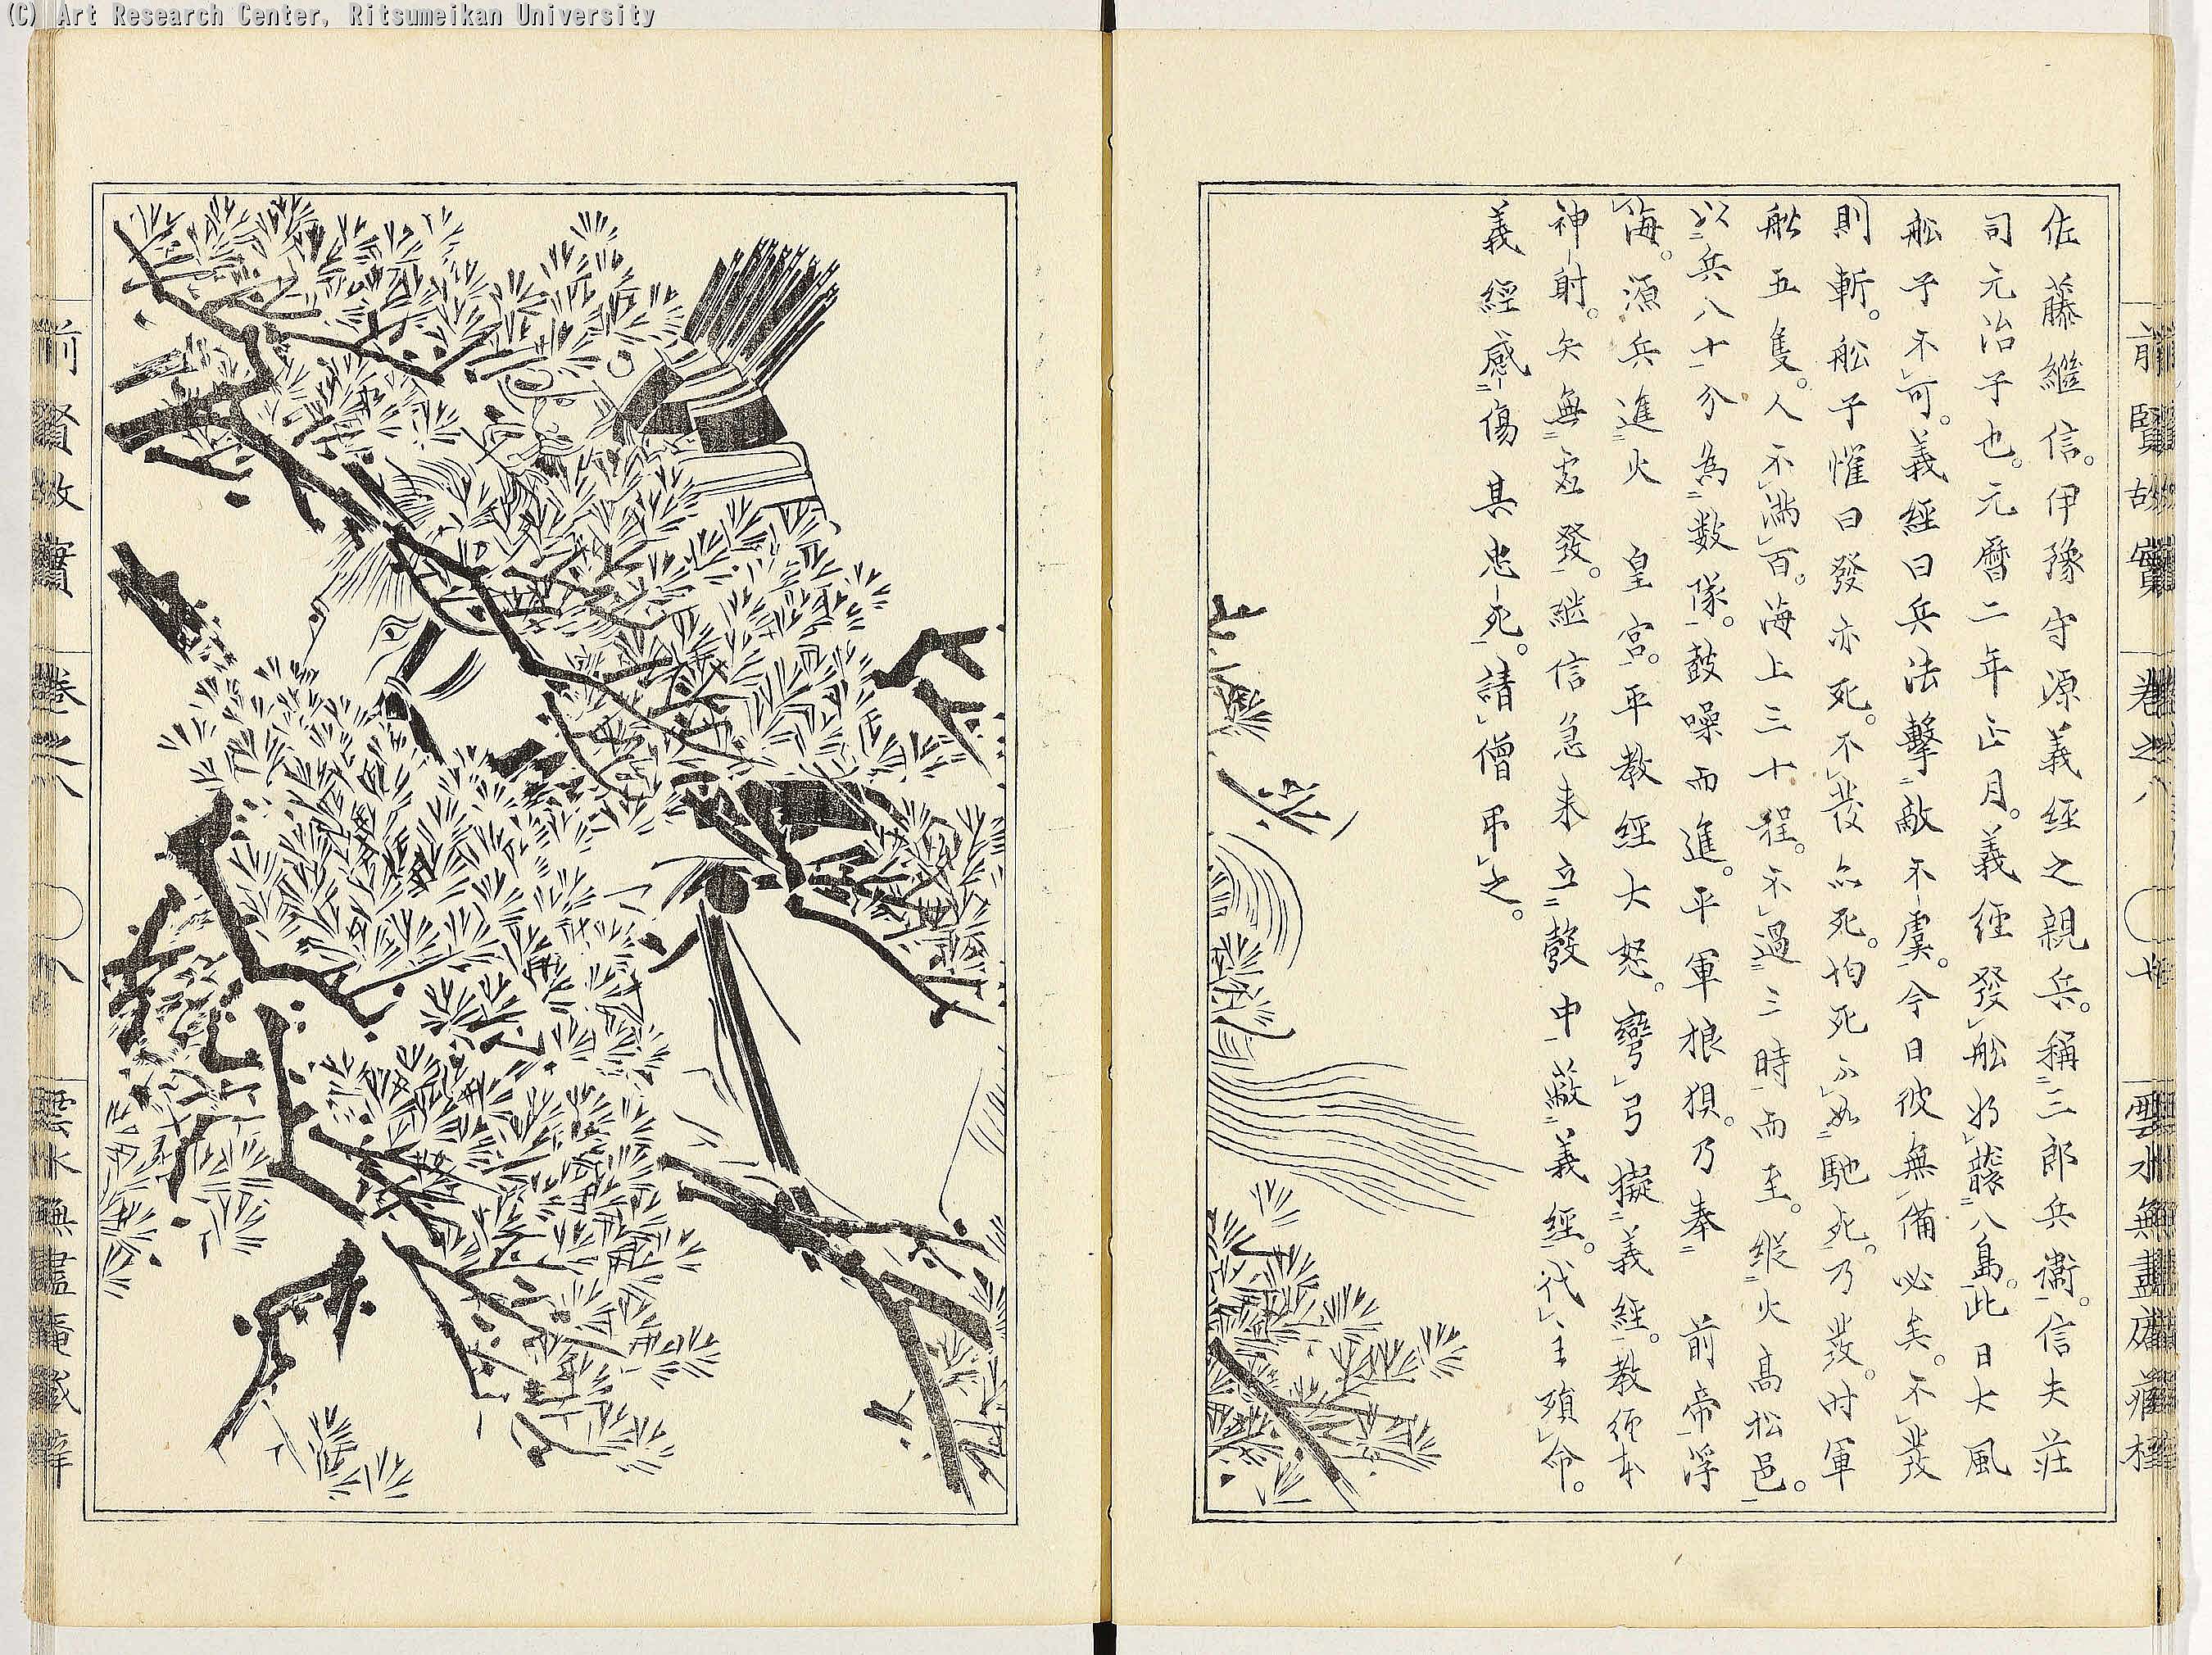 (C) Art Research Center, Ritsumeikan University
前賢故實 卷之八 〇七
佐藤繼信。伊豫守源義經之親兵。稱三郎兵衞。信夫莊
司元治子也。元曆二年正月。義經發舩將襲八島。此日大風
舩子不可。義經曰兵法擊敵不虞。今日彼無備必矣。不發
則斬。舩子懼曰發亦死。不發亦死。均死不如馳死。乃發。时軍
舩五隻。人不満百。海上三十程。不過三時而至。縱火高松邑。
以兵八十分為数隊。鼓噪而進。平軍狼狽。乃奉 前帝浮
海。源兵進火 皇宮。平教經大怒。彎弓擬義經。教經本
神射。矢無虛發。継信急来立彀中蔽義經。代主殞命。
義經感傷其忠死。請僧弔之。
前賢故實 卷之八 〇八 雲水無盡庵藏